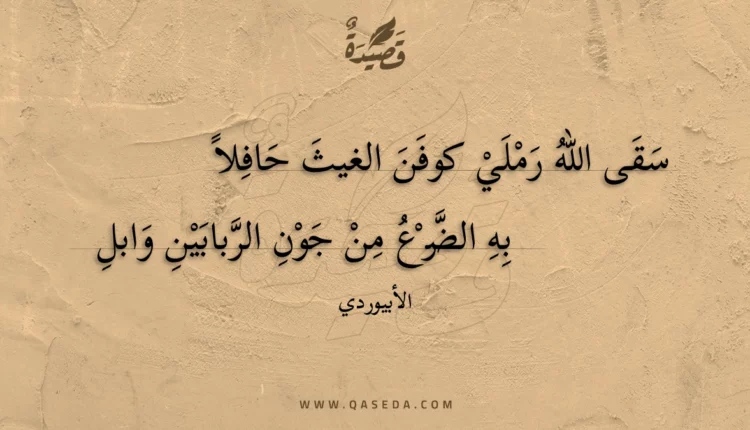 قَصِيدَةٌ
سَقَى اللهُ رَمْلَيْ كوفَنَ الغيثَ حَافِلاً
بِهِ الضَّرْعُ مِنْ جَوْنِ الرَّبابَيْنِ وَابلِ
الأبيوردي
WWW.QASEDA.COM